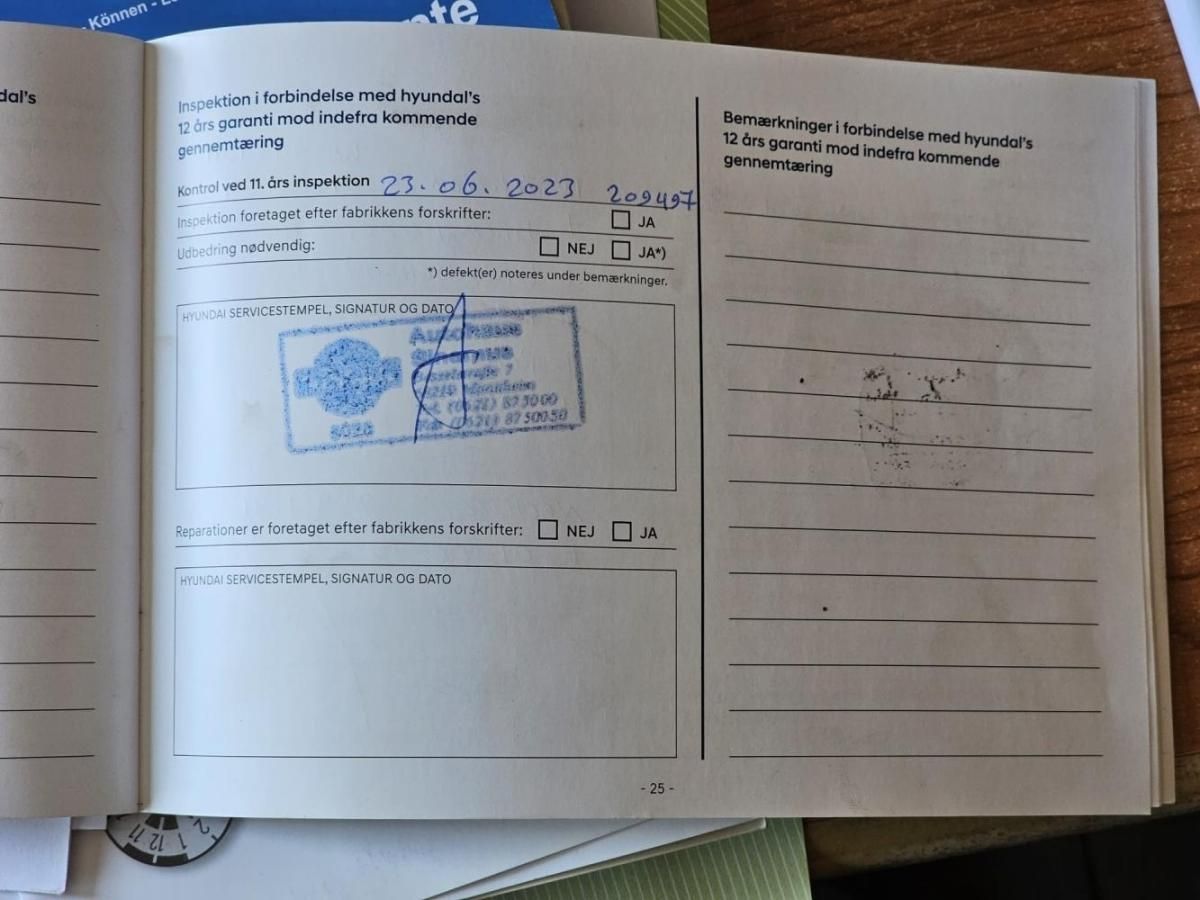 Können -
nte
dal's
Inspektion i forbindelse med hyundal's
12 års garanti mod indefra kommende
gennemtæring
Kontrol ved 11. års inspektion 23.06.2023 209497
Inspektion foretaget efter fabrikkens forskrifter: JA
Udbedring nødvendig: NEJ JA*)
*) defekt(er) noteres under bemærkninger.
HYUNDAI SERVICESTEMPEL, SIGNATUR OG DATO
Mannheim
87 50 00
87 500 50
Reparationer er foretaget efter fabrikkens forskrifter: NEJ JA
HYUNDAI SERVICESTEMPEL, SIGNATUR OG DATO
- 25 -
Bemærkninger i forbindelse med hyundal's
12 års garanti mod indefra kommende
gennemtæring
11 12 1 2